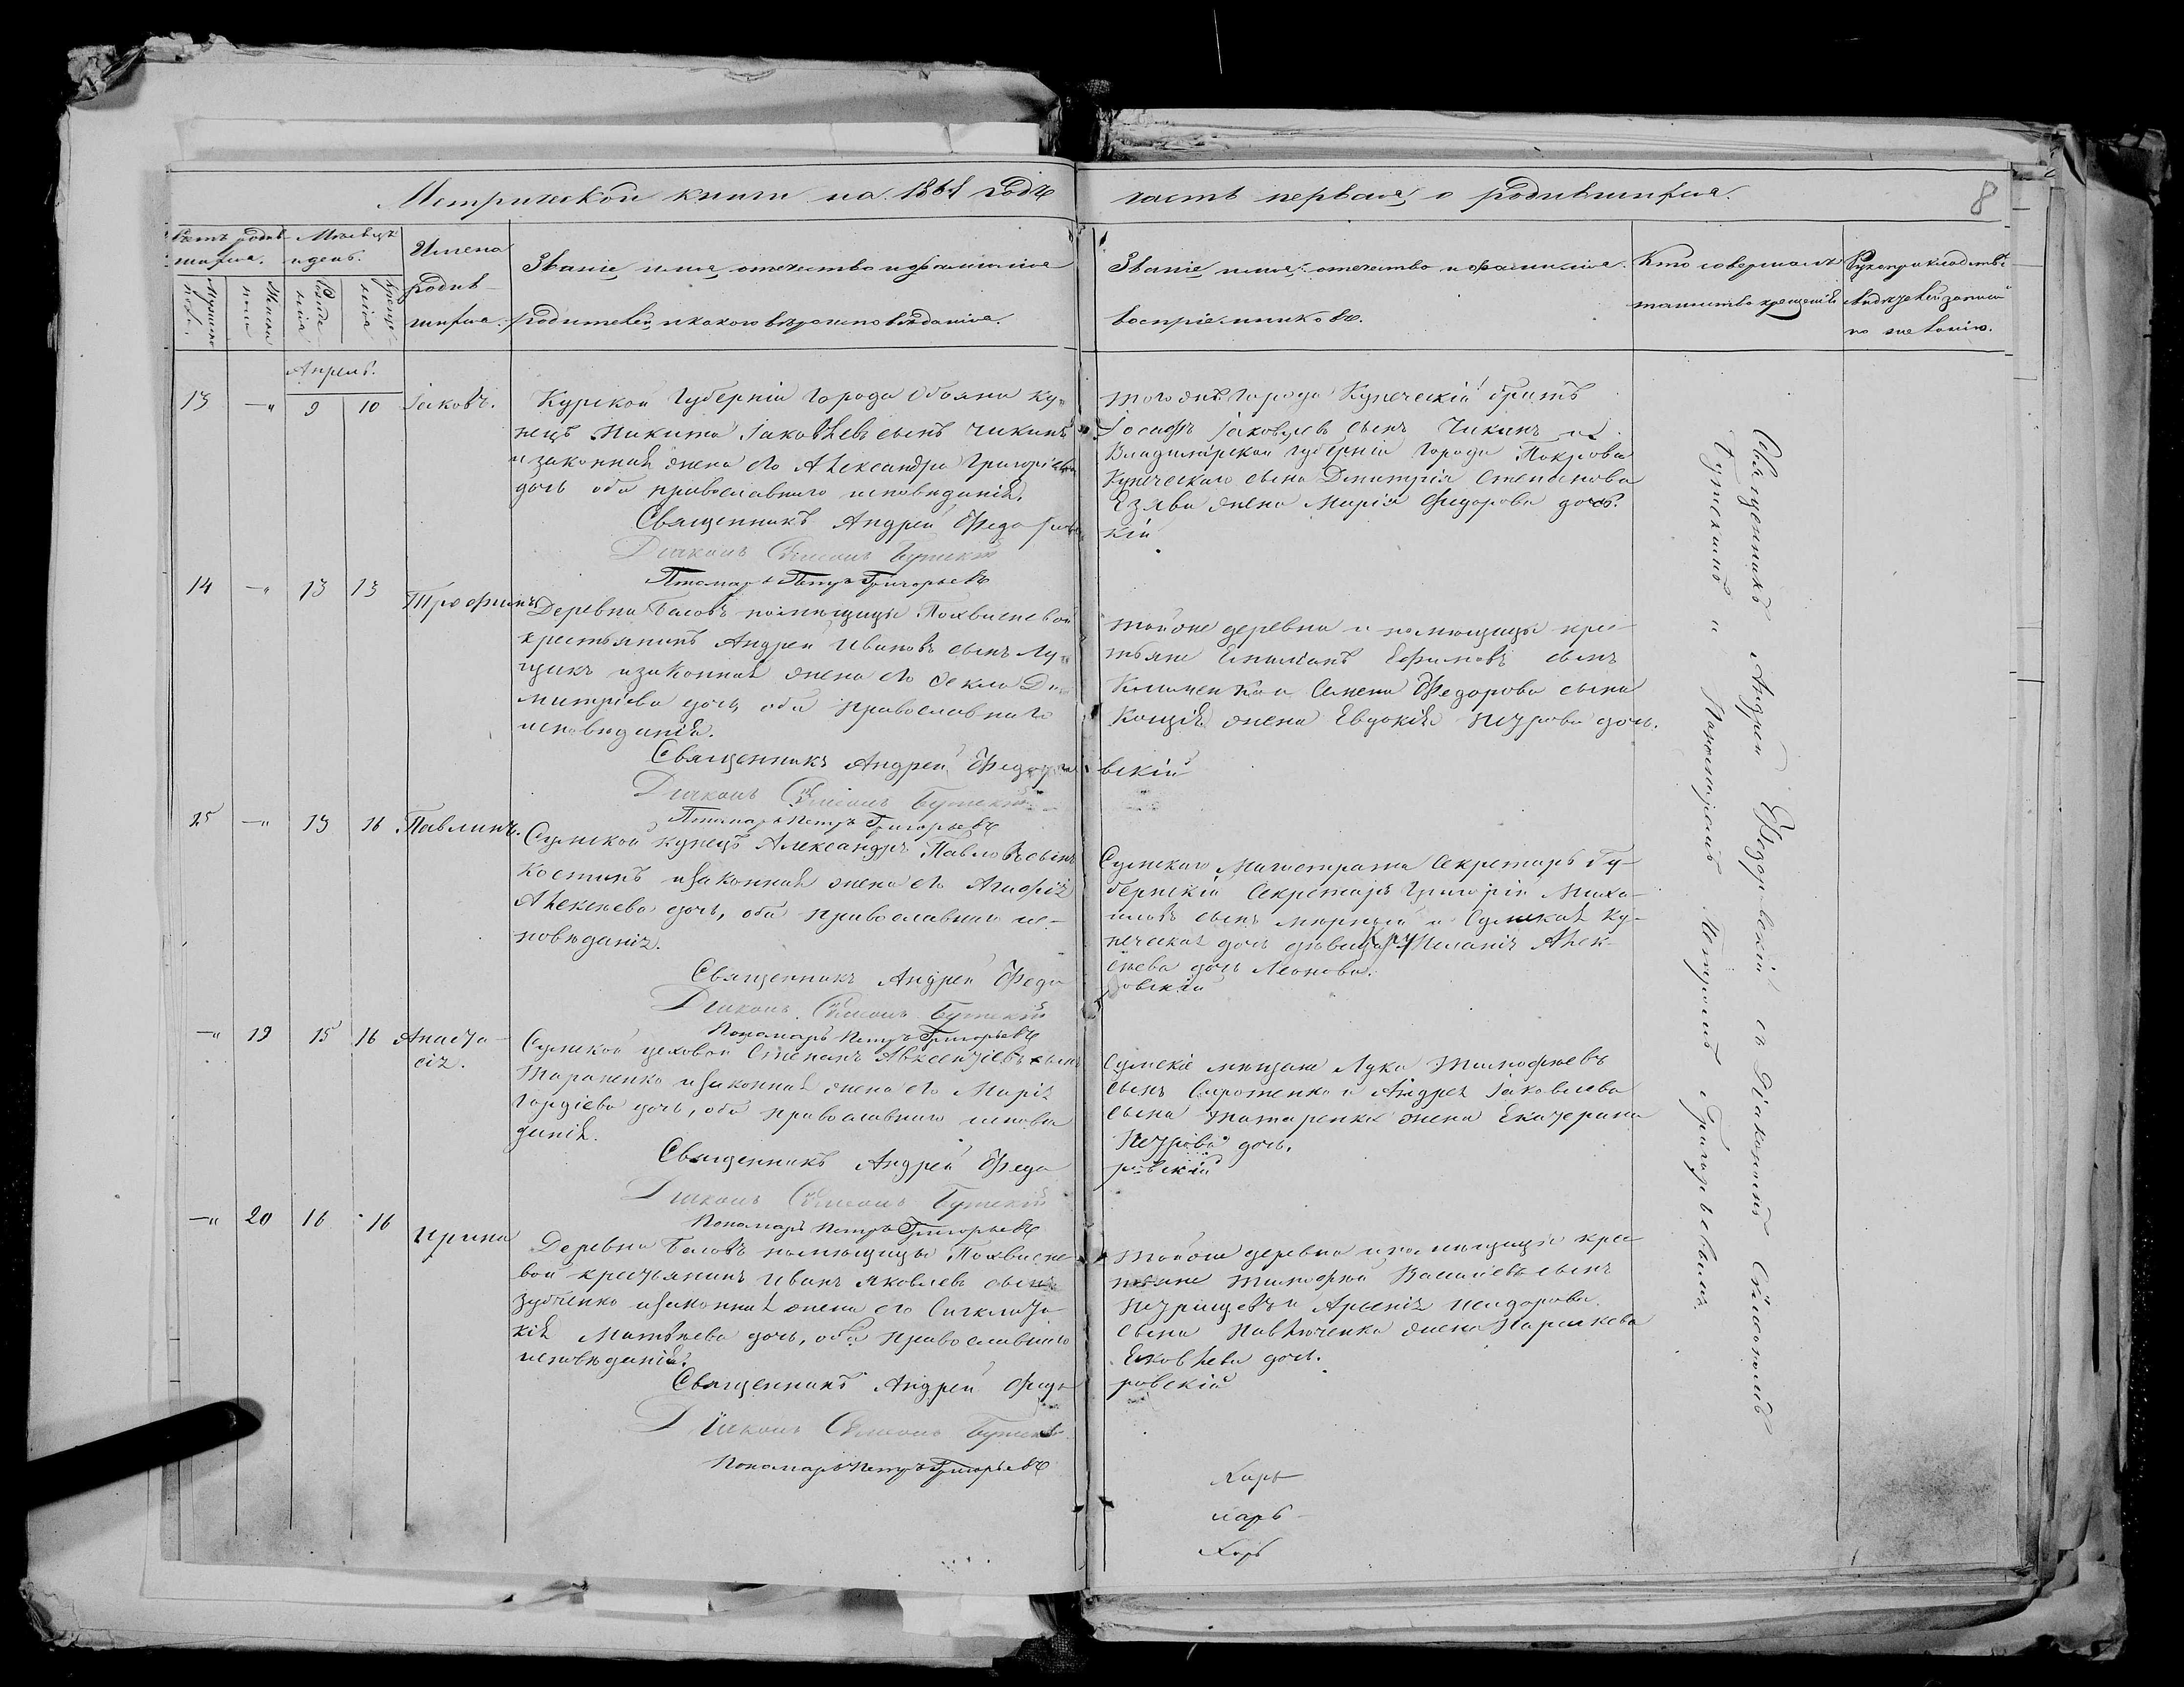 Метрической книги на 1861 годъ часть первая о родившихся.
8
Счетъ родив-
шихся.
Мѣсяцъ
и день.
Имена
родив-
шихся.
Званіе, имя, отечество и фамилія
родителей, и какого вѣроисповѣданія.
Званіе, имя, отечество и фамилія
воспріемниковъ.
Кто совершалъ
таинство крещенія
Рукоприкладство
свидѣтелей записи
по желанію.
Мужеска
пола.
Женска
пола
Рожде-
нія
Креще-
нія
Апрель.
13 —„ 9 10 Іаковъ.
Курской Губерніи города Обояни ку-
пецъ Никита Іаковлевъ сынъ Чикинъ
и законная жена его Александра Григоріева
дочь оба православнаго исповѣданія.
Священникъ Андрей Федоровскій
Діаконъ Сѵмеонъ
Пономарь Петръ Григорьевъ
того же города Купеческій братъ
Іосифъ Іаковлевъ сынъ Чикинъ и
Владимірской губерніи города Покрова
Купеческаго сына Дмитрія Степанова
жена Марія Федорова дочь.
14 —„ 13 13 Трофимъ
Деревни Басовъ помѣщицы Похвисневой
крестьянинъ Андрей Ивановъ сынъ Лу-
цикъ и законная жена его Фекла Ди-
митріева дочь, оба православнаго
исповѣданія.
Священникъ Андрей Федоровскій
Діаконъ Сѵмеонъ
Пономарь Петръ Григорьевъ
той же деревни и помѣщицы крес-
тьяне Емиліанъ Ефимовъ сынъ
и Семена Федорова сына
жена Евдокія Петрова дочь.
15 —„ 13 16 Павлинъ.
Сумской купецъ Александръ Павловъ сынъ
Костинъ и законная жена его Агафія
Алексѣева дочь, оба православнаго ис-
повѣданія.
Священникъ Андрей Федоровскій
Діаконъ Сѵмеонъ
Пономарь Петръ Григорьевъ
Сумскаго Магистрата Секретарь Гу-
бернскій Секретарь Григорій Миха-
иловъ сынъ и Сумская Ку-
печеская дочь дѣвица Алек-
сѣева дочь Леонова.
—„ 19 15 16 Анаста-
сія.
Сумской цеховой Стефанъ Авксентіевъ сынъ
Тараненко и законная жена его Марія
Гордіева дочь, оба православнаго исповѣ
данія.
Священникъ Андрей Федоровскій
Діаконъ Сѵмеонъ
Пономарь Петръ Григорьевъ
Сумскіе мѣщане Лука Тимофѣевъ
сынъ Сиротенко и Андрея Іаковлева
сына Татаренка жена Екатерина
Петрова дочь.
—„ 20 16 16 Ирина
Деревни Басовъ помѣщицы Похвисне-
вой крестьянинъ Иванъ Яковлевъ сынъ
Зубченко и законная жена его Сигклити-
кія Матвѣева дочь, оба православнаго
исповѣданія.
Священникъ Андрей Федоровскій
Діаконъ Сѵмеонъ
Пономарь Петръ Григорьевъ
той же деревни и помѣщицы крес-
тьяне Тимофѣй Васильевъ сынъ
и Арсенія
сына Павлюченка жена Параскева
Яковлева дочь.
Священникъ Андрей Федоровскій съ Діакономъ Сѵмеономъ
и Пономаремъ Петромъ Григорьевымъ